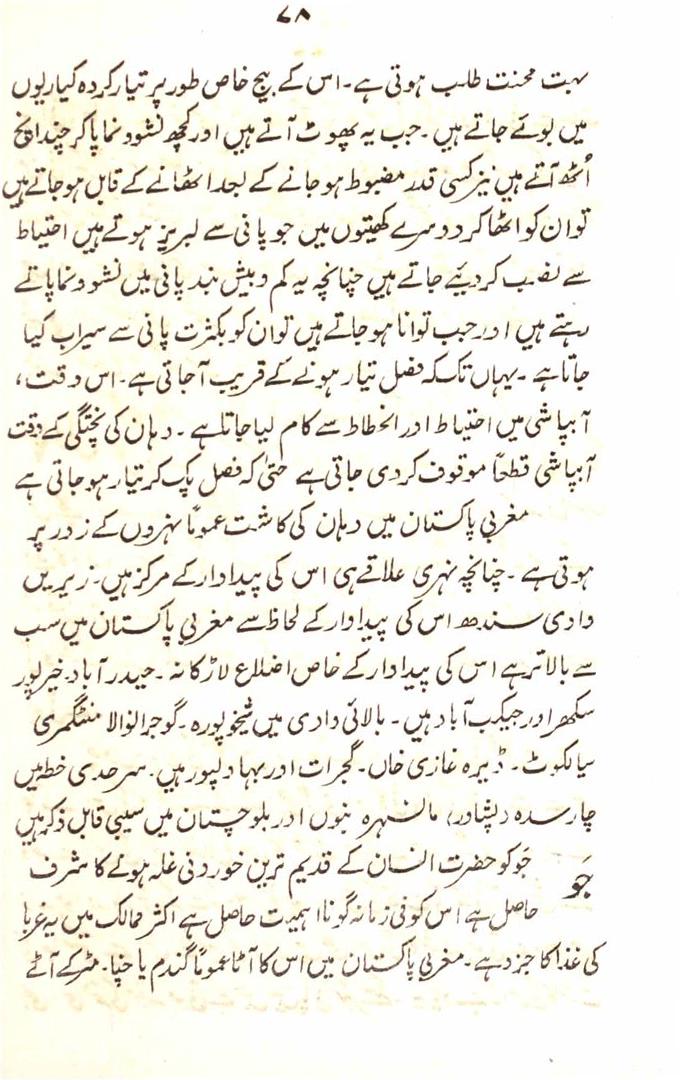 ۷۸
بہت محنت طلب ہوتی ہے۔ اس کے بیج خاص طور پر تیار کردہ کیاریوں
میں بوئے جاتے ہیں۔ جب یہ پھوٹ آتے ہیں اور کچھ نشوونما پا کر چند انچ
اُٹھ آتے ہیں نیز کسی قدر مضبوط ہو جانے کے بعد اٹھانے کے قابل ہو جاتے ہیں
تو ان کو اٹھا کر دوسرے کھیتوں میں جو پانی سے لبریز ہوتے ہیں احتیاط
سے نصب کر دیئے جاتے ہیں چنانچہ یہ کم و بیش بند پانی میں نشوونما پاتے
رہتے ہیں اور جب توانا ہو جاتے ہیں تو ان کو بکثرت پانی سے سیراب کیا
جاتا ہے۔ یہاں تک کہ فصل تیار ہونے کے قریب آ جاتی ہے۔ اس وقت،
آبپاشی میں احتیاط اور انحطاط سے کام لیا جاتا ہے۔ دہان کی پختگی کے وقت
آبپاشی قطعاً موقوف کر دی جاتی ہے حتیٰ کہ فصل پک کر تیار ہو جاتی ہے
مغربی پاکستان میں دہان کی کاشت عموماً نہروں کے زور پر
ہوتی ہے۔ چنانچہ نہری علاقے ہی اس کی پیداوار کے مرکز ہیں۔ زیریں
وادی سندھ اس کی پیداوار کے لحاظ سے مغربی پاکستان میں سب
سے بالاتر ہے اس کی پیداوار کے خاص اضلاع لاڑکانہ۔ حیدرآباد۔ خیرپور
سکھر اور جیکب آباد ہیں۔ بالائی وادی میں شیخوپورہ۔ گوجرانوالا منٹگمری
سیالکوٹ۔ ڈیرہ غازی خاں۔ گجرات اور بہاولپور ہیں۔ سرحدی خطہ میں
چارسدہ (پشاور) مانسہرہ بنوں اور بلوچستان میں سیبی قابل ذکر ہیں
جَو
جَو کو حضرت انسان کے قدیم ترین خوردنی غلہ ہونے کا شرف
حاصل ہے اس کو فی زمانہ گونا اہمیت حاصل ہے اکثر ممالک میں یہ غربا
کی غذا کا جزو ہے۔ مغربی پاکستان میں اس کا آٹا عموماً گندم یا چنا۔ مٹر کے آٹے